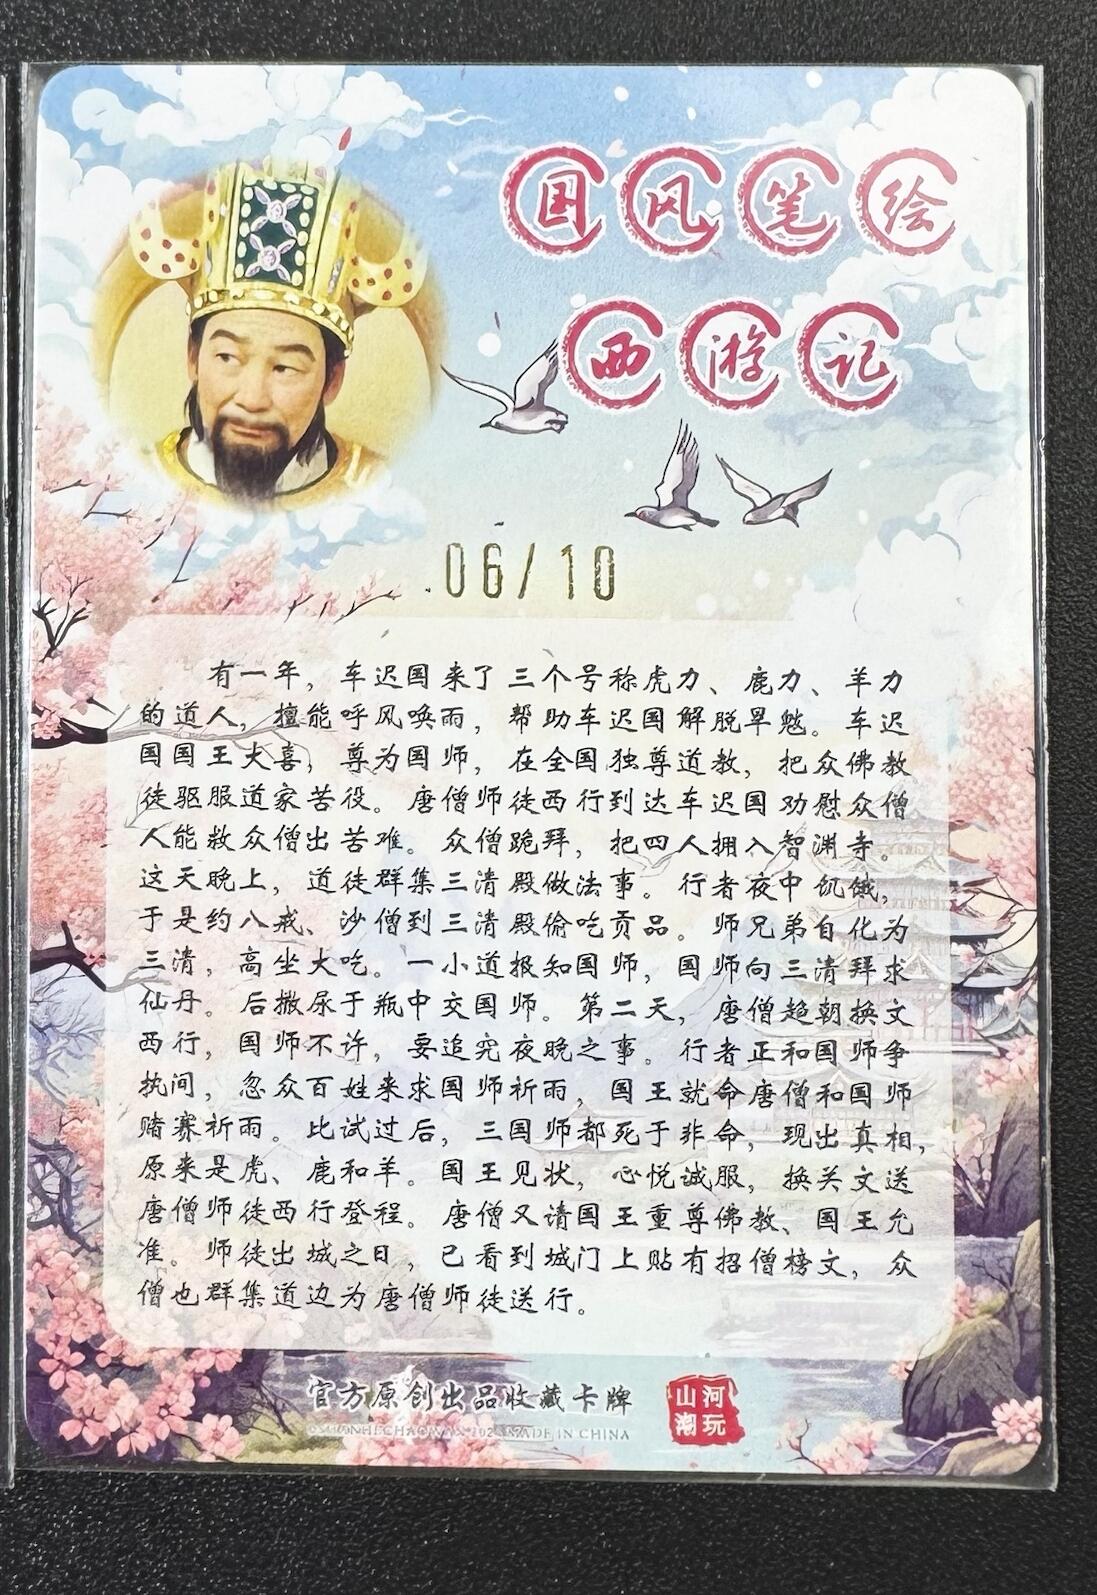 国风笔绘
西游记
06/10
有一年，车迟国来了三个号称虎力、鹿力、羊力
的道人，擅能呼风唤雨，帮助车迟国解脱旱魃。车迟
国国王大喜，尊为国师，在全国独尊道教，把众佛教
徒驱服道家苦役。唐僧师徒西行到达车迟国劝慰众僧
人能救众僧出苦难。众僧跪拜，把四人拥入智渊寺。
这天晚上，道徒群集三清殿做法事。行者夜中饥饿，
于是约八戒、沙僧到三清殿偷吃贡品。师兄弟自化为
三清，高坐大吃。一小道报知国师，国师向三清拜求
仙丹。后撒尿于瓶中交国师。第二天，唐僧趋朝换文
西行，国师不许，要追究夜晚之事。行者正和国师争
执间，忽众百姓来求国师祈雨，国王就命唐僧和国师
赌赛祈雨。比试过后，三国师都死于非命，现出真相，
原来是虎、鹿和羊。国王见状，心悦诚服，换关文送
唐僧师徒西行登程。唐僧又请国王重尊佛教、国王允
准。师徒出城之日，已看到城门上贴有招僧榜文，众
僧也群集道边为唐僧师徒送行。
官方原创出品收藏卡牌
MADE IN CHINA
山河
潮玩